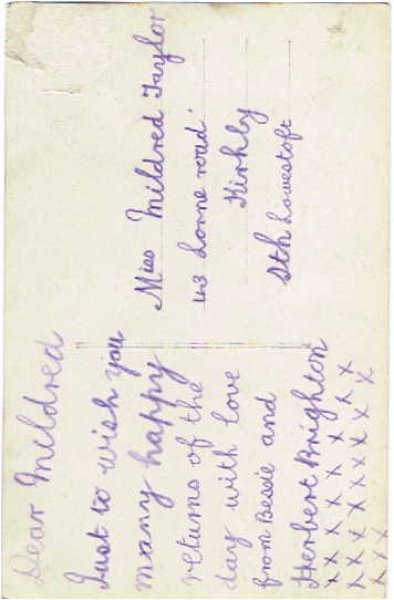 Dear Mildred
Just to wish you
many happy
returns of the
day with love
from Bessie and
Herbert Brighton
x x x x x x x x
x x x x x x x x
x x x
Miss Mildred Taylor
43 Lorne road.
Kirkby
Sth Lowestoft